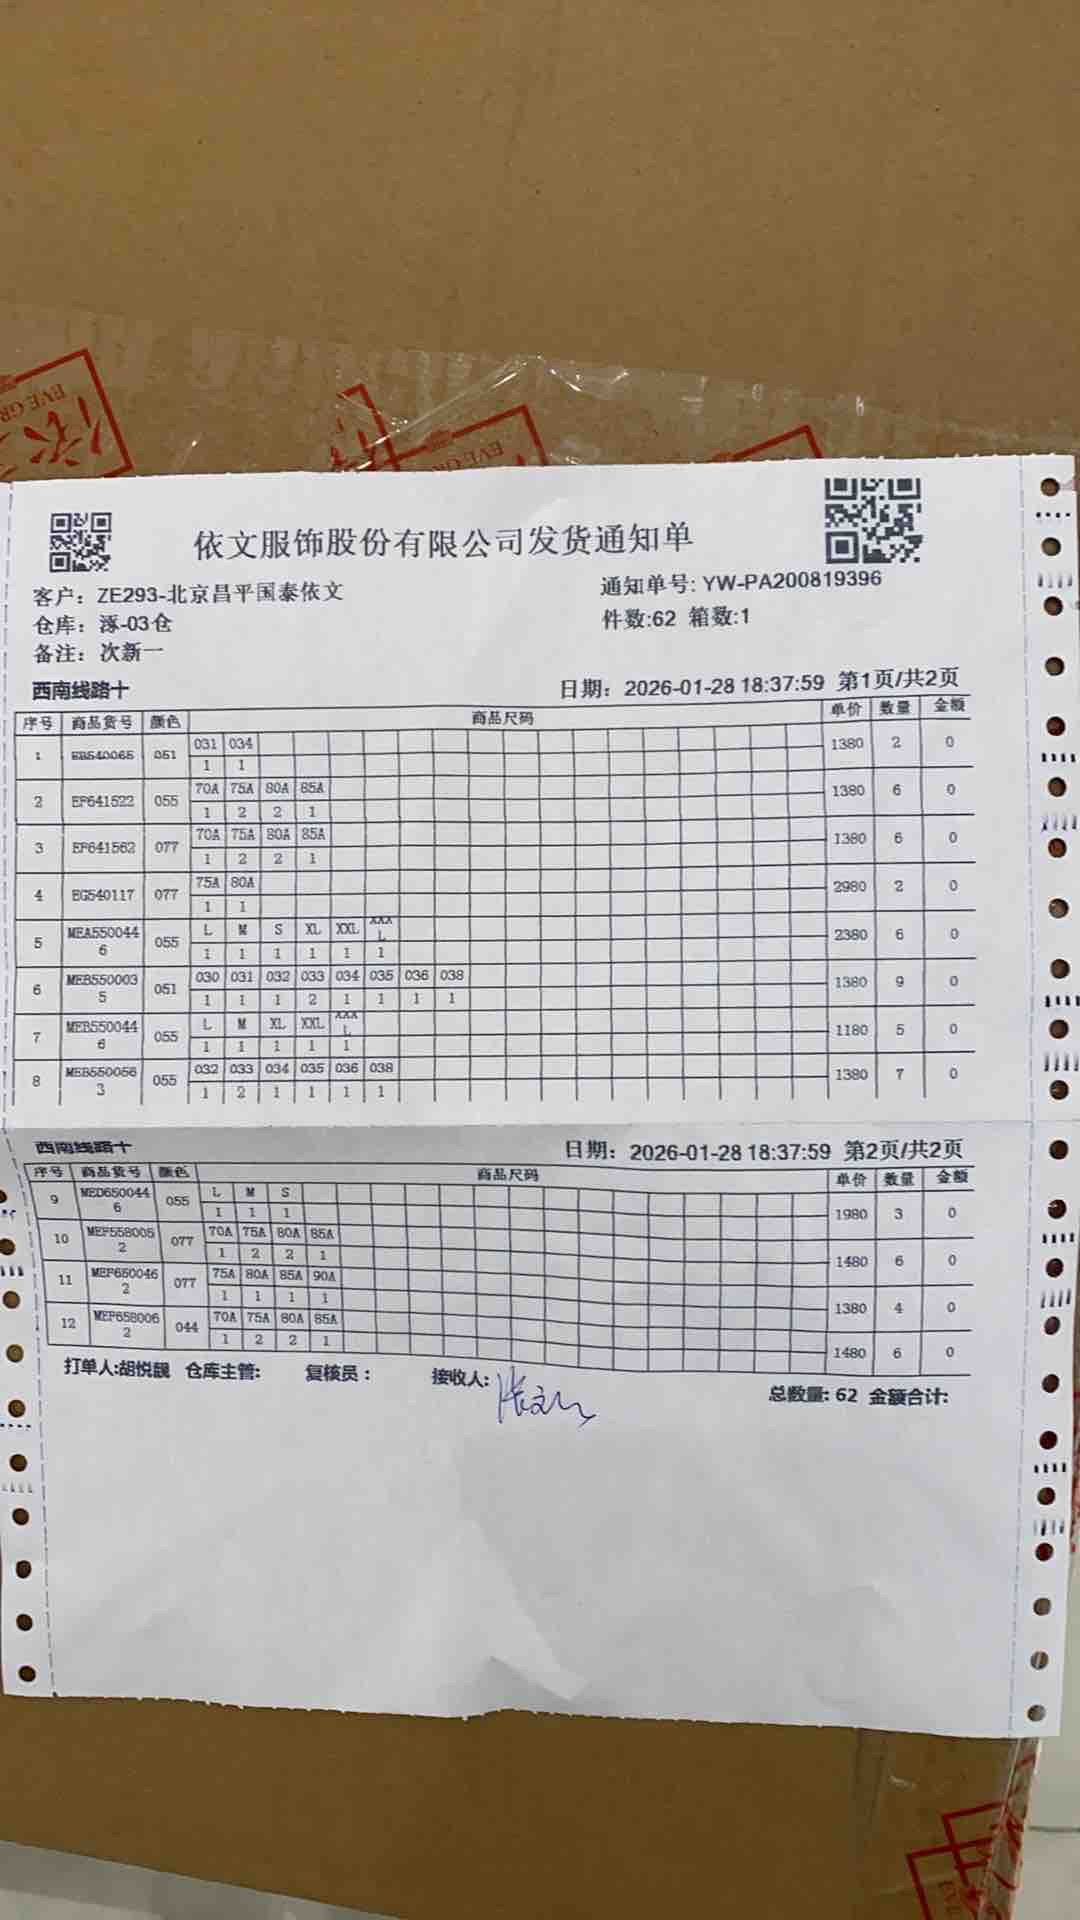 EVE GR
EVE G
依文服饰股份有限公司发货通知单
客户：ZE293-北京昌平国泰依文
通知单号: YW-PA200819396
仓库：涿-03仓
件数:62 箱数:1
备注：次新一
西南线路十
日期：2026-01-28 18:37:59 第1页/共2页
序号 商品货号 颜色 商品尺码 单价 数量 金额
1 EB540065 051 031 034 1380 2 0
1 1
2 EF641522 055 70A 75A 80A 85A 1380 6 0
1 2 2 1
3 EF641562 077 70A 75A 80A 85A 1380 6 0
1 2 2 1
4 EG540117 077 75A 80A 2980 2 0
1 1
5 MEA5500446 055 L M S XL XXL XXXL 2380 6 0
1 1 1 1 1 1
6 MEB5500035 051 030 031 032 033 034 035 036 038 1380 9 0
1 1 1 2 1 1 1 1
7 MEB5500446 055 L M XL XXL XXXL 1180 5 0
1 1 1 1 1
8 MEB5500563 055 032 033 034 035 036 038 1380 7 0
1 2 1 1 1 1
西南线路十
日期：2026-01-28 18:37:59 第2页/共2页
序号 商品货号 颜色 商品尺码 单价 数量 金额
9 MED6500446 055 L M S 1980 3 0
1 1 1
10 MEF5580052 077 70A 75A 80A 85A 1480 6 0
1 2 2 1
11 MEF6500462 077 75A 80A 85A 90A 1380 4 0
1 1 1 1
12 MEF6580062 044 70A 75A 80A 85A 1480 6 0
1 2 2 1
打单人:胡悦靓 仓库主管: 复核员： 接收人:
总数量: 62 金额合计: